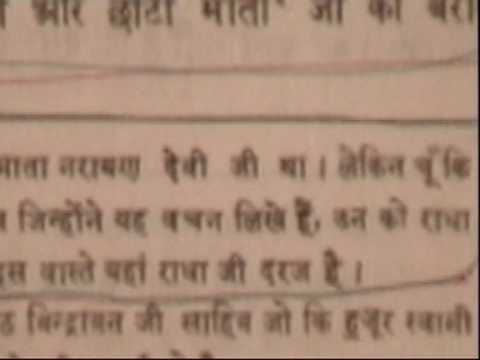 और छोटी माता जी की
माता नरायण देवी जी था । लेकिन चूँ कि
जिन्होंने यह बचन लिखे हैं, उन को राधा
इस वास्ते यहां राधा जी दरज है ।
बिन्द्राबन जी साहिब जो कि हुजूर स्वामी